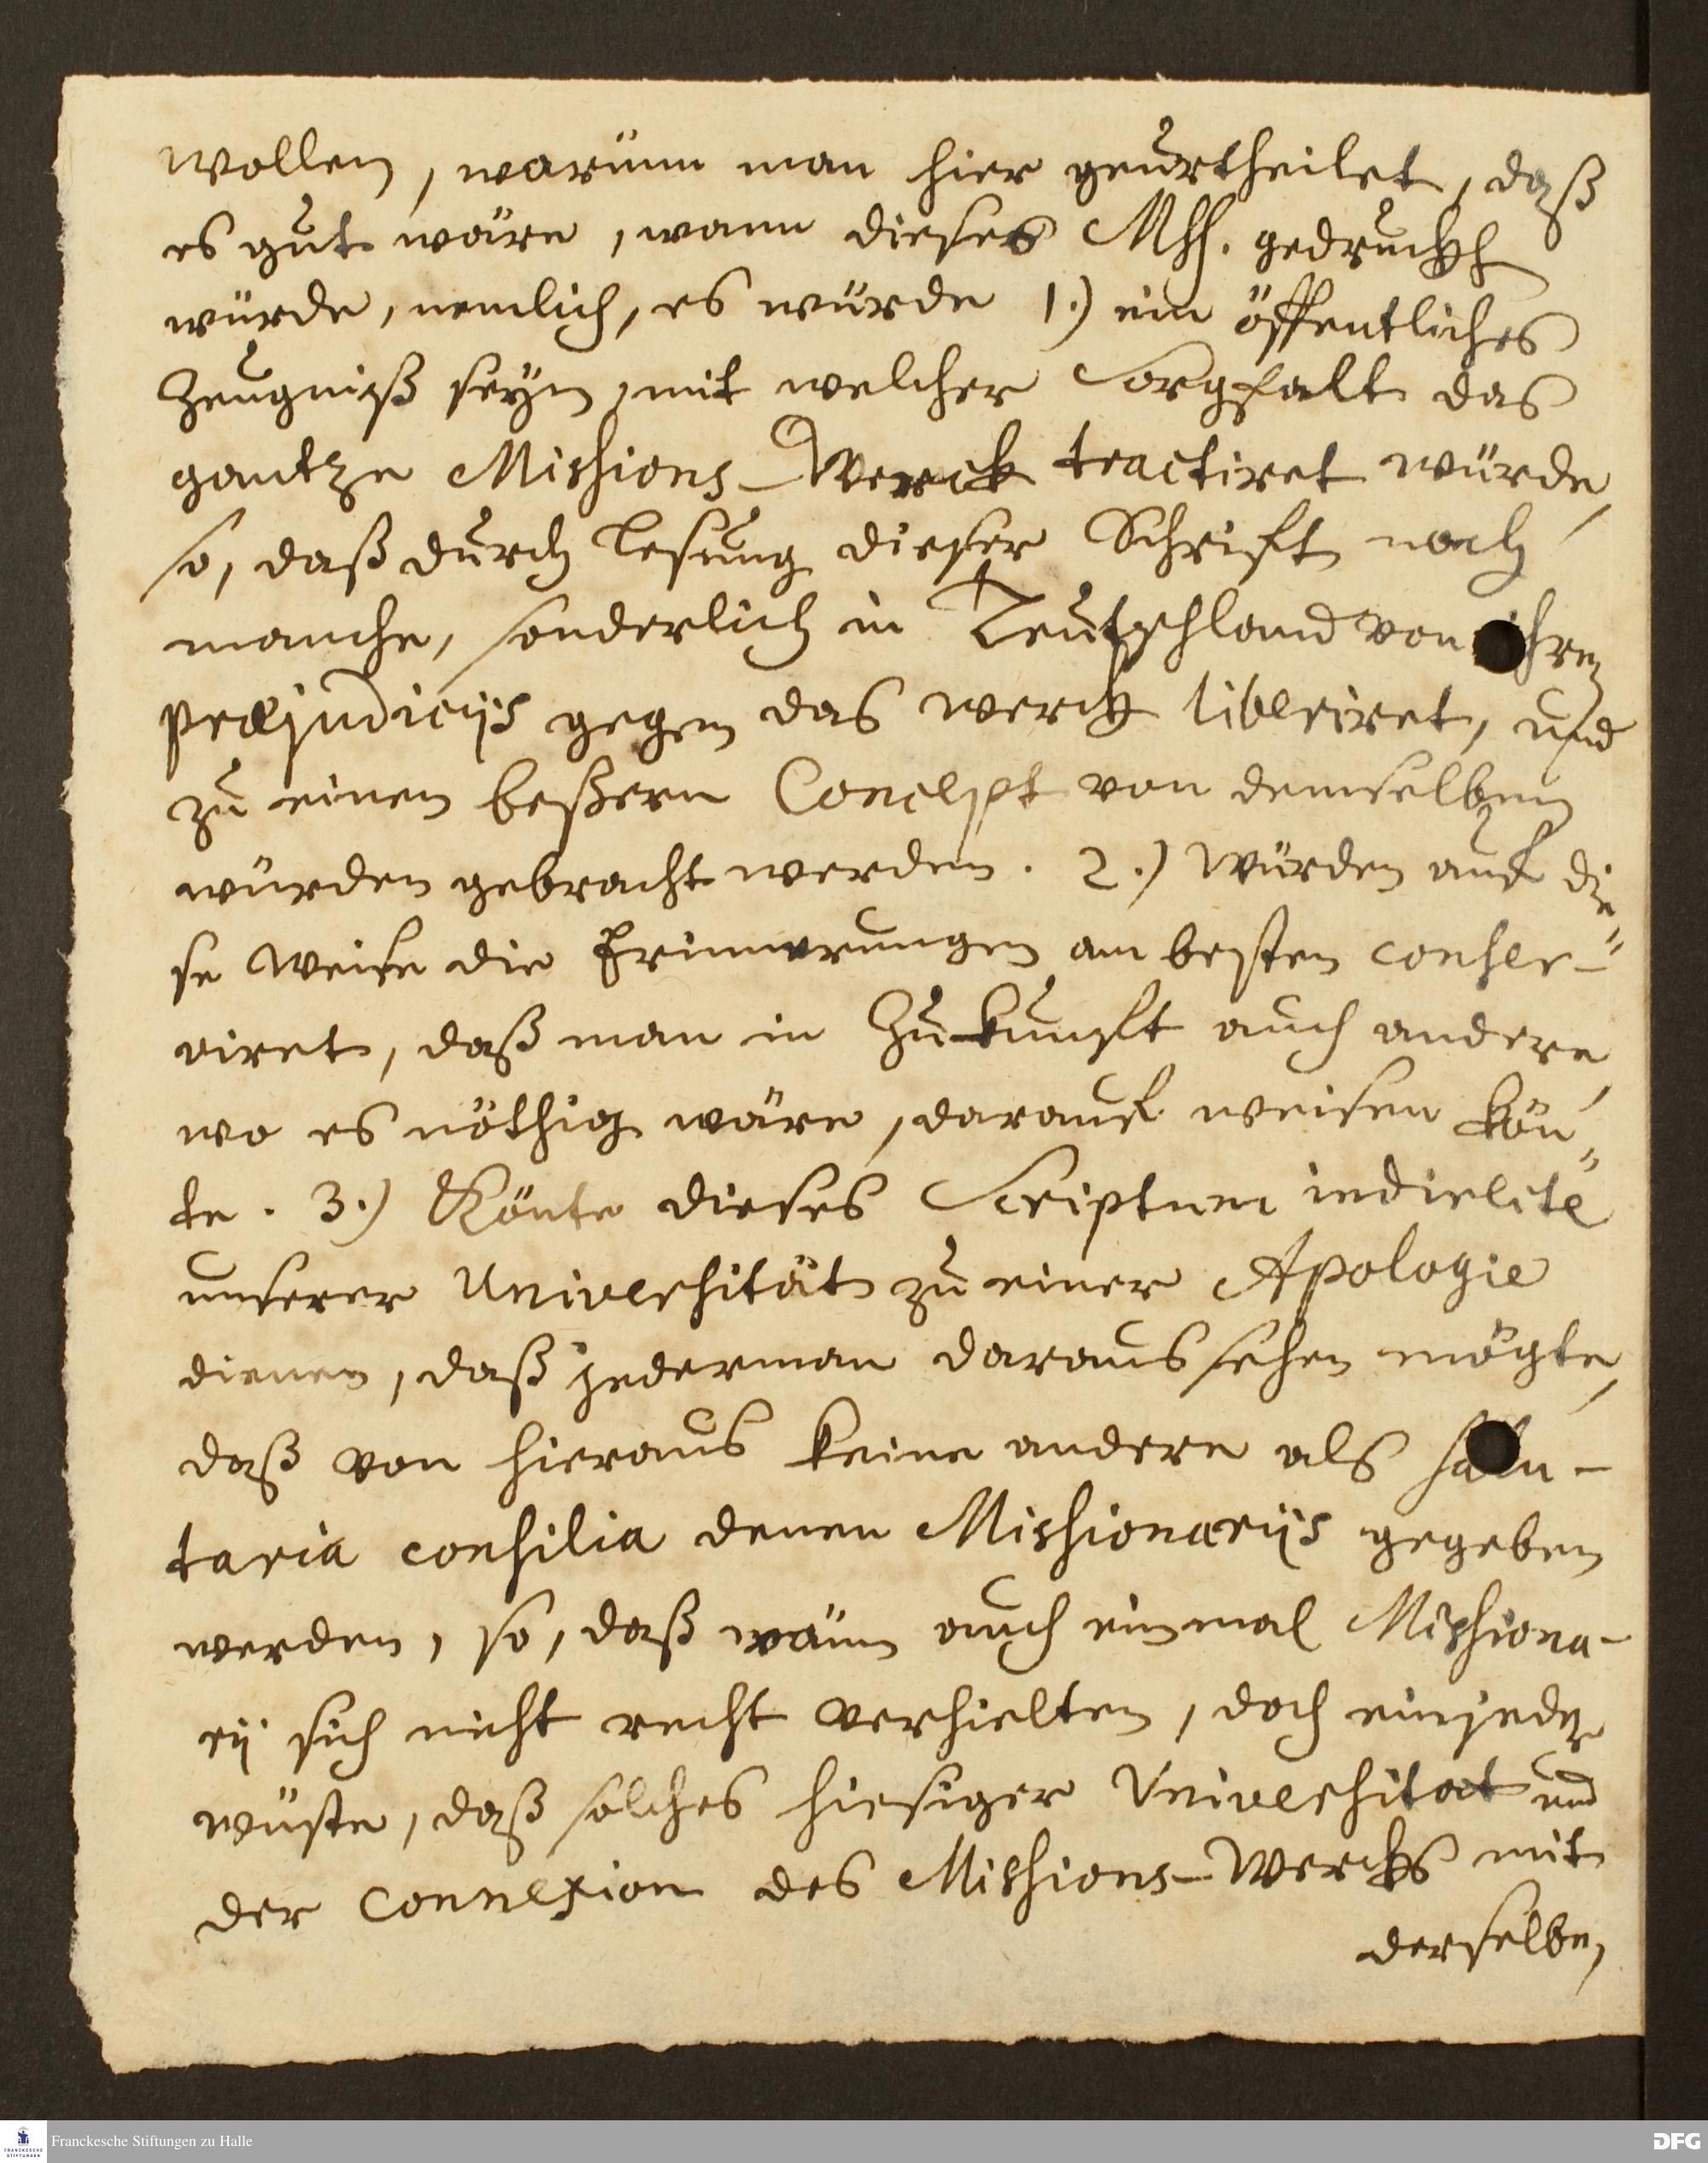 wollen, warüm man hier geurtheilet, daß
es gut wäre, wann dieses Mss. gedruckt
würde, nemlich, es würde 1.) ein öffentliches
Zeugniß seyn, mit welcher Sorgfalt das
gantze Missions-Werck tractiret würde,
so, daß durch Lesung dieser Schrift noch
manche, sonderlich in Teutschland von ihren
præjudiciis gegen das werck liberiret, und
zu einen beßern Concept von demselben
würden gebracht werden. 2.) Würden auf die"
se Weise die Erinnerungen am besten conser-
viret, daß man in Zukunft auch andere,
wo es nöthig wäre, darauf weisen kön"
te. 3.) Könte dieses Scriptum indirecte
unserer Universität zu einer Apologie
dienen, daß jederman daraus sehen mögte,
daß von hieraus keine andere als salu-
taria consilia denen Missionariis gegeben
werden, so, daß wann auch einmal Missiona-
rij sich nicht recht verhielten, doch ein jeder
wüste, daß solches hiesiger Universitat und
der Connexion des Missions-Wercks mit
derselben,
Franckesche Stiftungen zu Halle
FRANCKESCHE
STIFTUNGEN
DFG